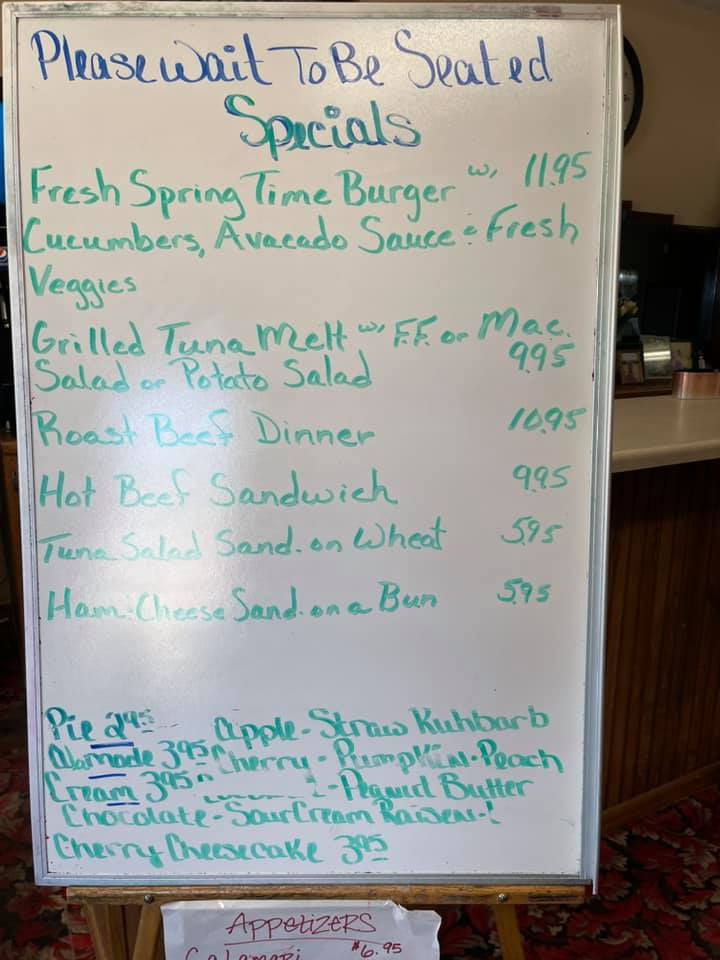 Please wait To Be Seated
Specials
Fresh Spring Time Burger w/ 11.95
Cucumbers, Avacado Sauce & Fresh
Veggies
Grilled Tuna Melt w/ F.F. or Mac.
Salad or Potato Salad 9.95
Roast Beef Dinner 10.95
Hot Beef Sandwich 9.95
Tuna Salad Sand. on Wheat 5.95
Ham & Cheese Sand. on a Bun 5.95
Pie 2.95 Apple - Straw Ruhbarb
Alamode 3.95 Cherry - Pumpkin - Peach
Cream 3.95 - Peanut Butter
Chocolate - Sour Cream Raisen
Cherry Cheesecake 3.95
Appetizers
Calamari $6.95